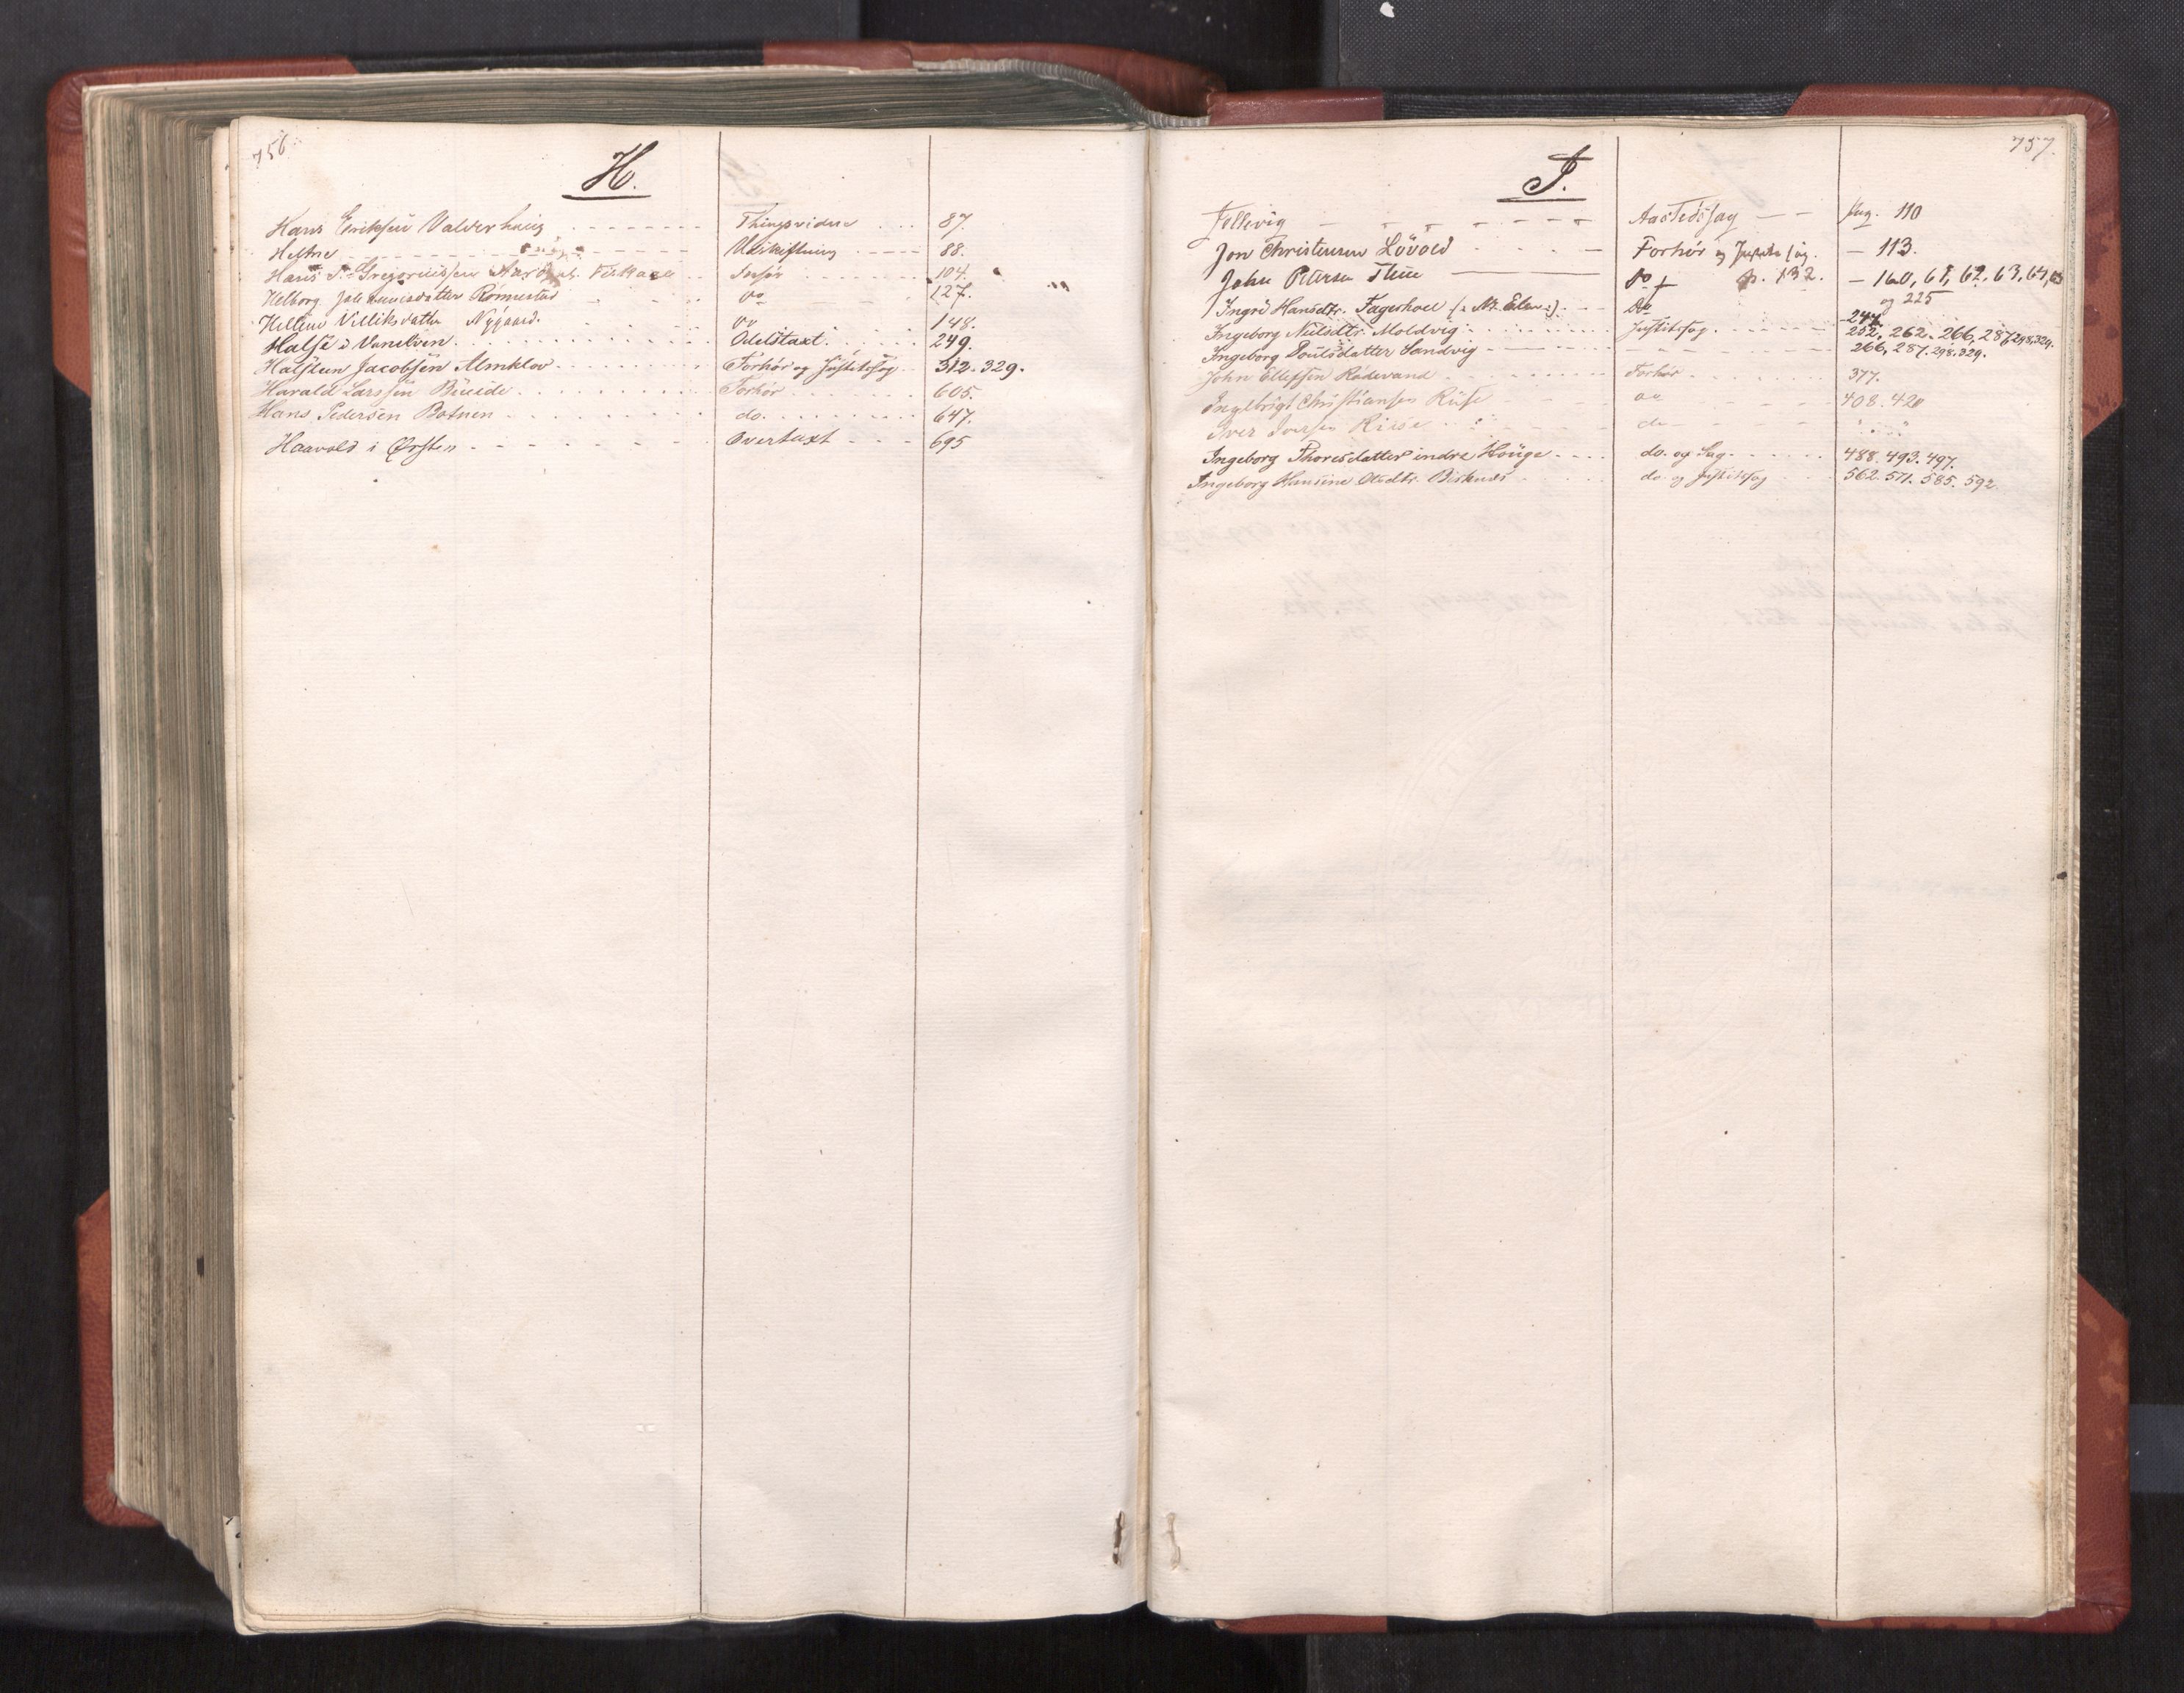 756
H.
Hans Eriksen Valderhaug Thingsvidne 87.
Helsne Udskiftning 88.
Hans P. Gregoriussen 104.
Helborg Johannesdatter Rönnestad do 127.
Hellene Villiksdatter Nygaard. do 148.
Halse i Vanelven Odelstaxt. 249.
Halsten Jacobsen Almklov Forhör og Justitssag 312. 329.
Harald Larssen Forhör 605.
Hans Pedersen Botnen do. 647.
Haavold i Ørsten Overtaxt 695
757.
I.
Aastedssag Pag. 110
Jon Christensen Lövold Forhör og Justitssag. — 113.
John Petersen do p. 132. — 160, 61, 62, 63, 64,
og 225
Ingri Hansdtr. Fagerhoel Do 247.
Ingeborg Nielsdtr. Moldvig Justitssag. 252. 262. 266, 287, 298, 329.
Ingeborg Poulsdatter Sandvig 266, 287. 298. 329.
John Ellefsen Rödevand Forhör 377.
Ingebrigt Christiansen Riise do 408. 420
Iver Iversen Riise do
Ingeborg Thoresdatter indre Houge do. og Sag. 488. 493. 497.
Ingeborg Hansine Olsdtr. do. og Justitssag 562. 571. 585. 592.